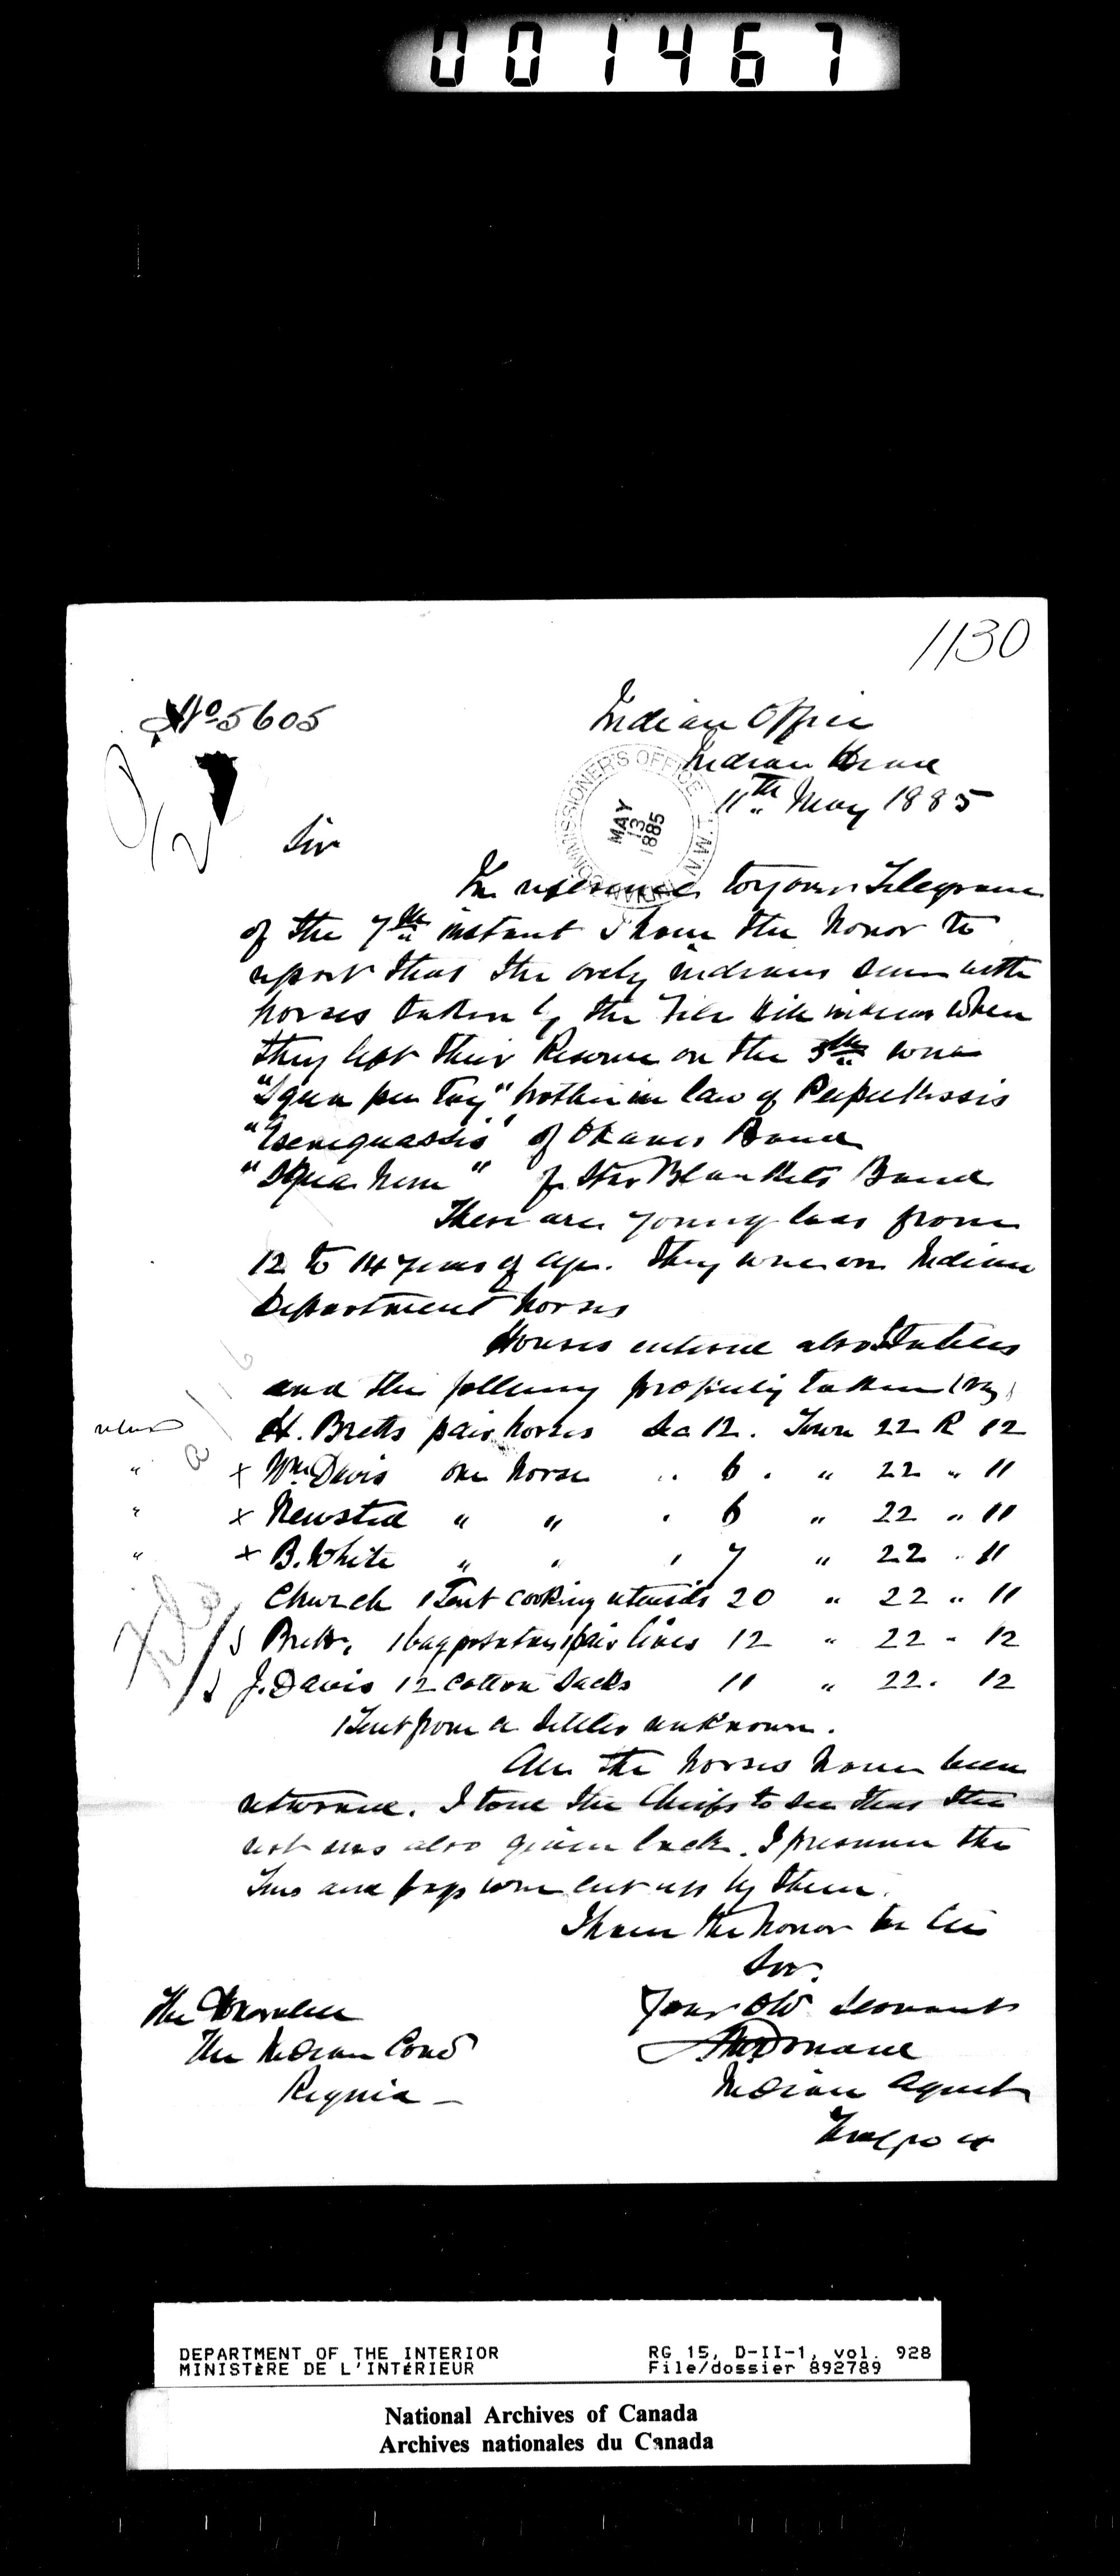 001467
1130
No 5605
Indian Office
Indian Head
11th May 1885
COMMISSIONER'S OFFICE
MAY 13 1885
N.W.T.
Sir
In reference to your Telegram
of the 7th instant I have the honor to
report that the only indians seen with
horses taken by the File Hill indians when
they left their Reserve on the 5th were
brother in law of
of Okanes Band
of Star Blankets Band
These are young lads from
12 to 14 years of age. They were on Indian
Department horses
Houses entered also Stables
and the following property taken (viz)
return H. Bretts pair horses Sec 12. Town 22 R 12
" x Wm Davis one horse " 6 . " 22 " 11
" x Newsted " " " 6 " 22 " 11
" x B. White " " " 7 " 22 " 11
Church 1 Tent cooking utensils 20 " 22 " 11
Brett, 1 bag potatoes 1 pair lines 12 " 22 " 12
J. Davis 12 Cotton Sacks 11 " 22 . 12
1 Tent from a Settler unknown.
All the horses have been
returned. I told the Chiefs to see that the
rest was also given back. I presume the
and bags were cut up by them.
I have the honor to be
Sir.
Your Obt Servant
McDonald
Indian Agent
The Honorable
The Indian Comr
Regina
DEPARTMENT OF THE INTERIOR
MINISTÈRE DE L'INTÉRIEUR
RG 15, D-II-1, vol. 928
File/dossier 892789
National Archives of Canada
Archives nationales du Canada